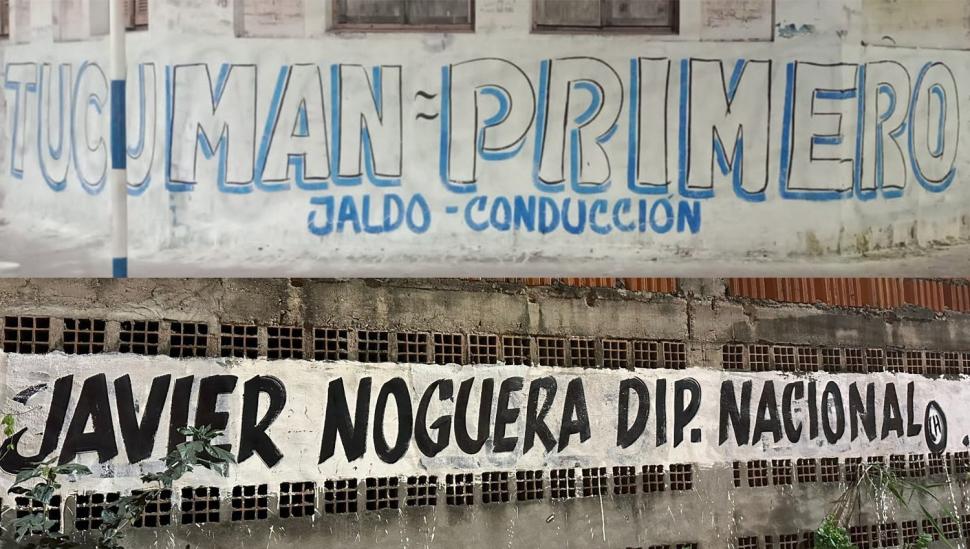 TUCUMAN ≈ PRIMERO
JALDO - CONDUCCIÓN
JAVIER NOGUERA DIP. NACIONAL